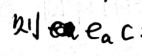 则 ea c